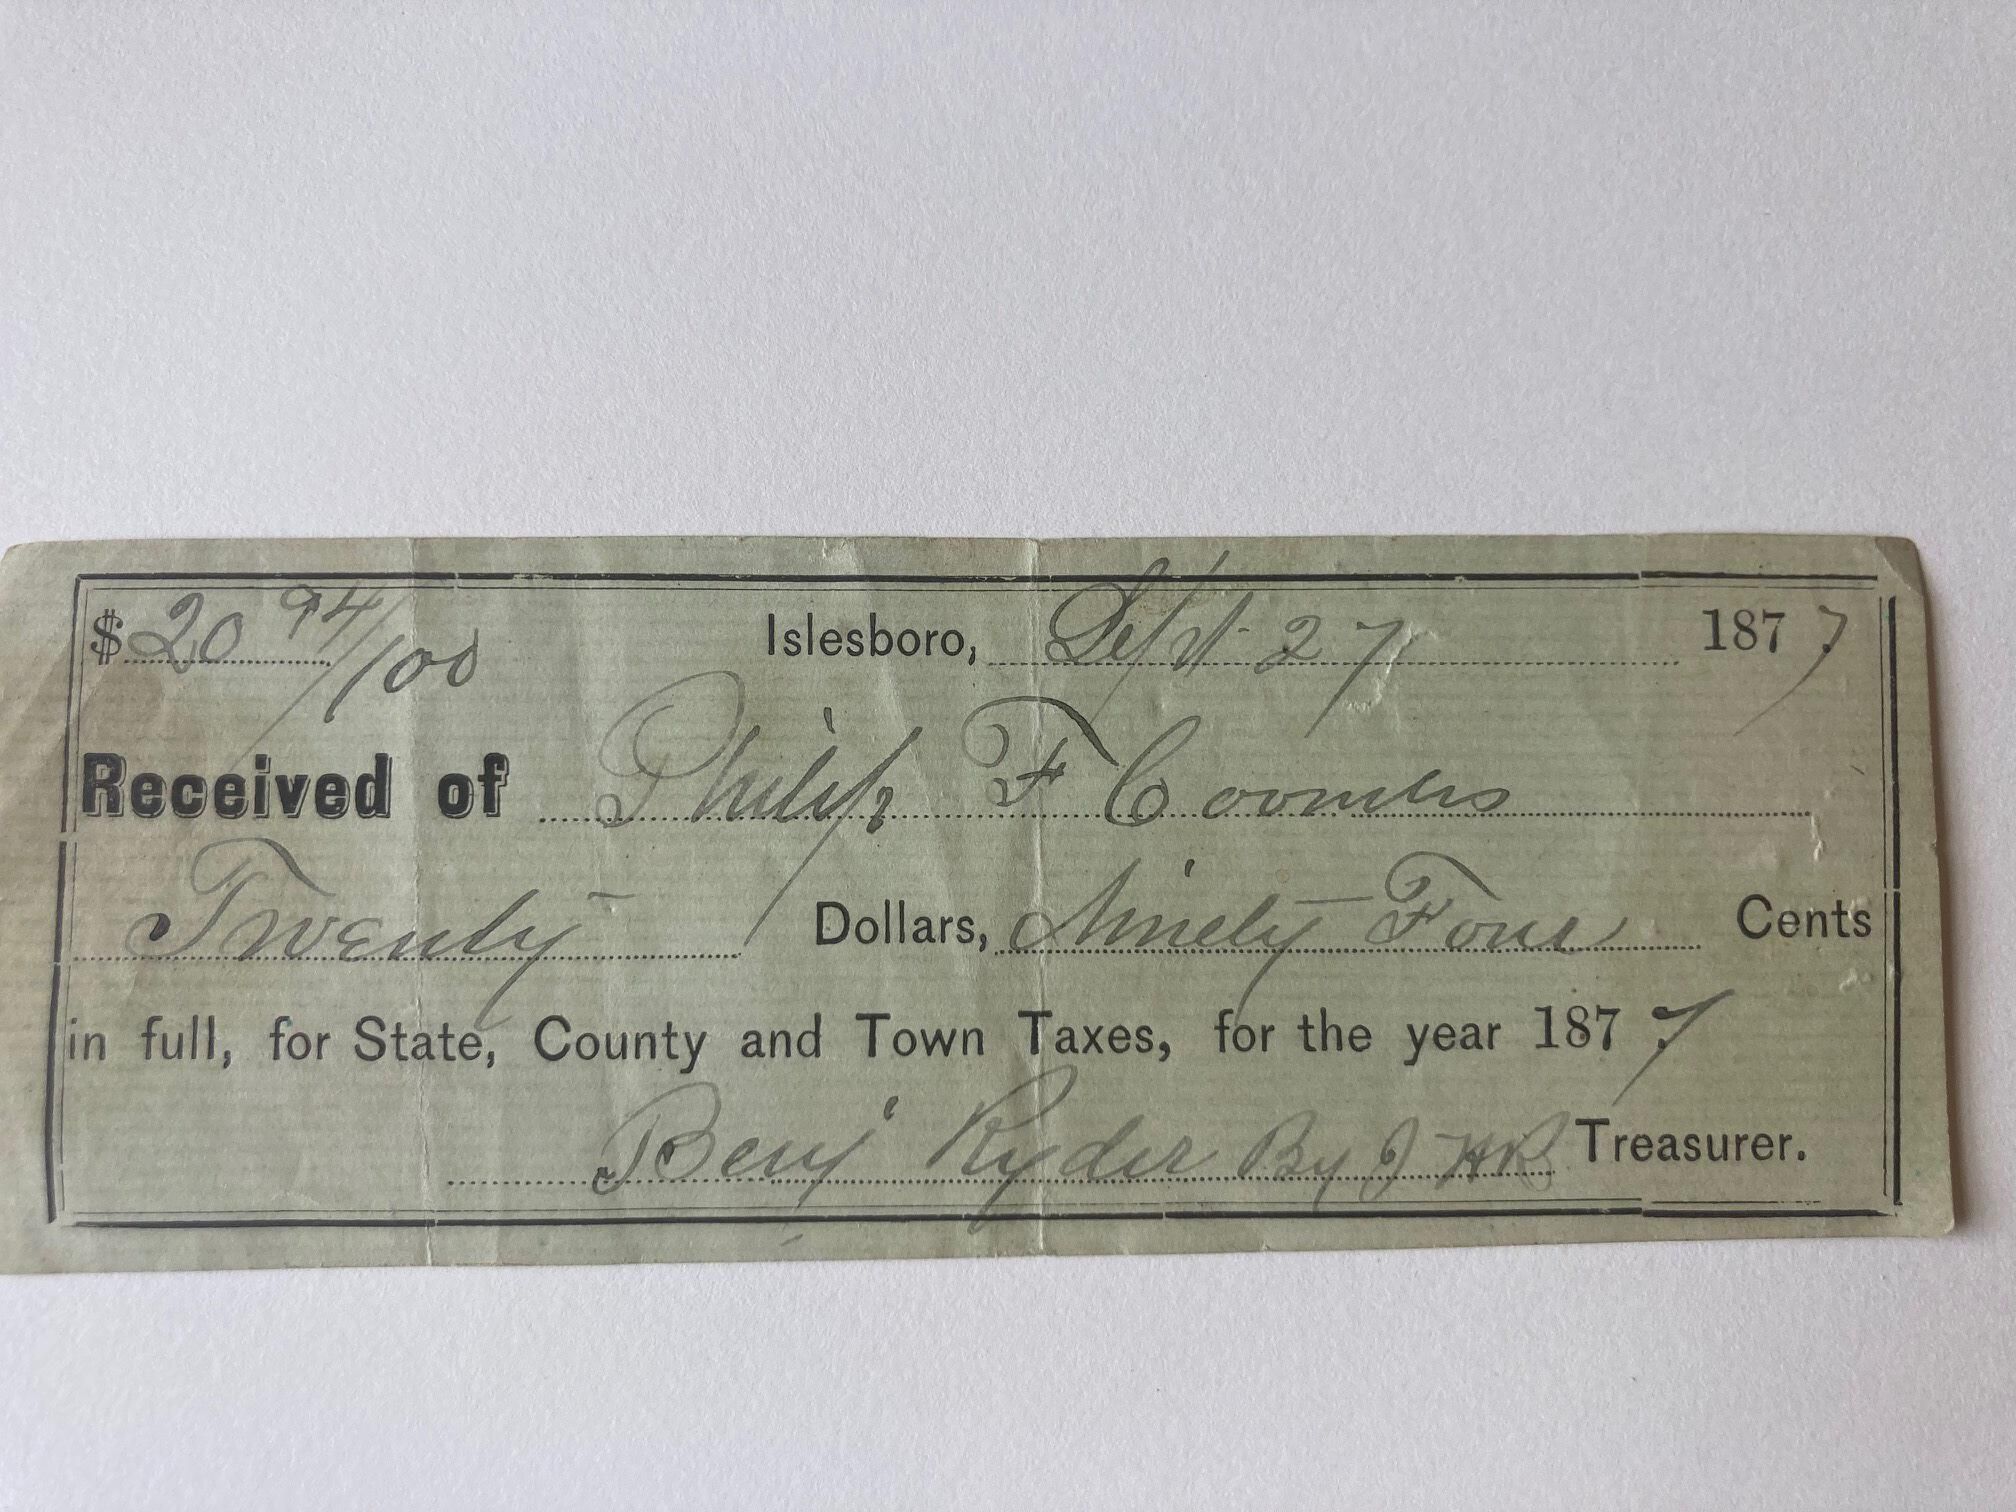 $ 20 94/100 Islesboro, Sept. 27 1877
Received of Philip F Coombs
Twenty Dollars, Ninety Four Cents
in full, for State, County and Town Taxes, for the year 1877.
Benj Ryder By J H R Treasurer.